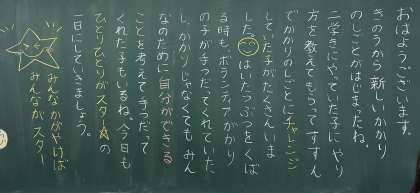 おはようございます。
きのうから新しいかかり
のしごとがはじまったね。
二学きにやっていた子にやり
方を教えてもらってすすん
でかかりのしごとにチャレンジ
していた子がたくさんいま
した。はいたつぶつをくば
る時も、ボランティアがかり
の子が手つだってくれていた
し、かかりじゃなくても、みん
なのために自分ができる
ことを考えて手つだって
くれた子もいるね。今日も
ひとりひとりがスター☆の
一日にしていきましょう。
みんながかがやけば
みんながスター